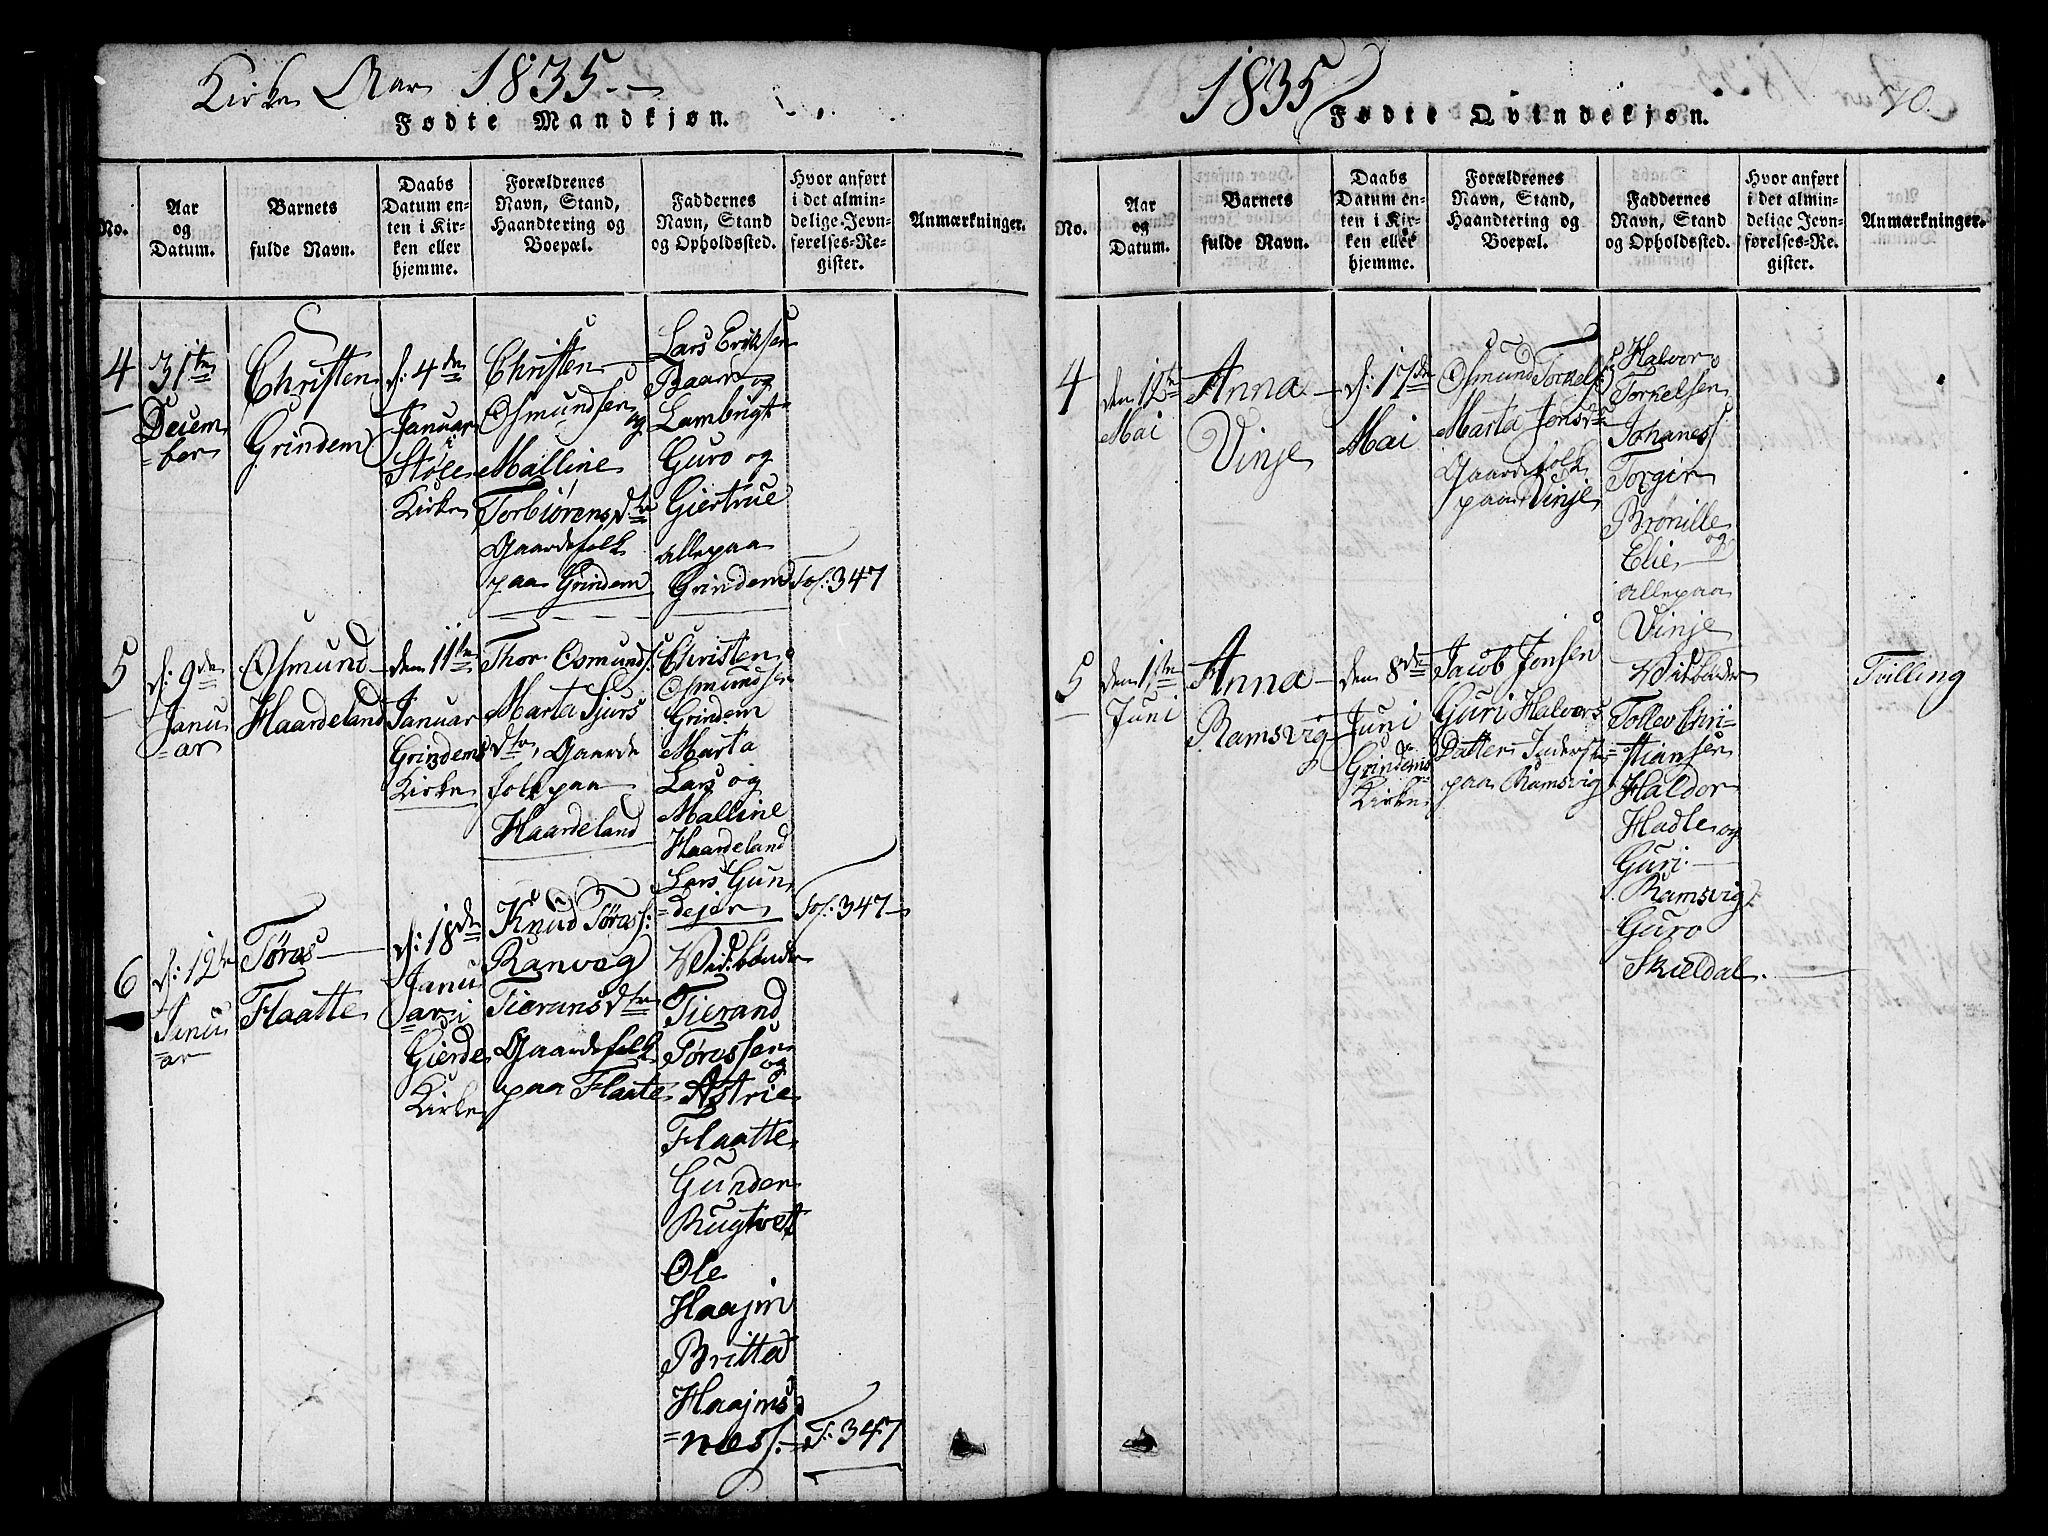 Kirke Aar 1835.
Fødte Mandkjøn.
No.
Aar
og
Datum.
Barnets
fulde Navn.
Daabs
Datum en-
ten i Kir-
ken eller
hjemme.
Forældrenes
Navn, Stand,
Haandtering og
Boepæl.
Faddernes
Navn, Stand
og Opholdssted.
Hvor anført
i det almin-
delige Jevn-
førelses-Re-
gister.
Anmærkninger.
4
31te
Decem
=ber
Christen
Grindem
d: 4de
Januar
i
Støle
Kirke
Christen
Osmundsen
og
Malline
Torbiørensdtr
Gaardefolk
paa Grindem
Lars Eriksen
Baar og
Lambrigt
Guro og
Giertrue
alle paa
Grindem
Fol: 347
5
d: 9de
Janu
=ar
Osmund
Haardeland
den 11te
Januar
Grindems
Kirke
Thor Osmunds:
Marta Sjurs
dtr, Gaarde
folk paa
Haardeland
Christen
Osmundsen
Grindem
Marta
Lars og
Malline
Haardeland
Lars Gun
=dejer
Fol: 347
6
d: 12te
Janu
=ar
Tøres
Flaatte
d: 18de
Janu
=ar i
Gierde
Kirke
Knud Tøress:
Ranveg
Tieransdtr
Gaardefolk
paa Flaate
Widebønder
Tierand
Tøressen
og
Astrie
Flaatte
Gunder
Rugtvett
Ole
Haajm
Britta
Haajms
=næs:
F: 347
1835
Fødte Qvindekjøn.
70.
No.
Aar
og
Datum.
Barnets
fulde Navn.
Daabs
Datum en-
ten i Kir-
ken eller
hjemme.
Forældrenes
Navn, Stand,
Haandtering og
Boepæl.
Faddernes
Navn, Stand
og Opholdssted.
Hvor anført
i det almin-
delige Jevn-
førelses-Re-
gister.
Anmærkninger.
4
den 12te
Mai
Anna
Vinje
d: 17de
Mai
Osmund Torkels:
Marta Jonsdtr
Gaardefolk
paa Vinje
Halvor
Torkelsen
Johanes
Torgir
Brønille
og
Elie
alle paa
Vinje
5
den 1ste
Juni
Anna
Ramsvig
den 8de
Juni
Grindems
Kirke
Jacob Jonsen
Guri Halvors
Datter Inderste
paa Ramsvig
Widebønder
Tollev Chri=
=stiansen
Haldor
Hadle og
Guri
Ramsvig
Guro
Skieldal
Tvilling